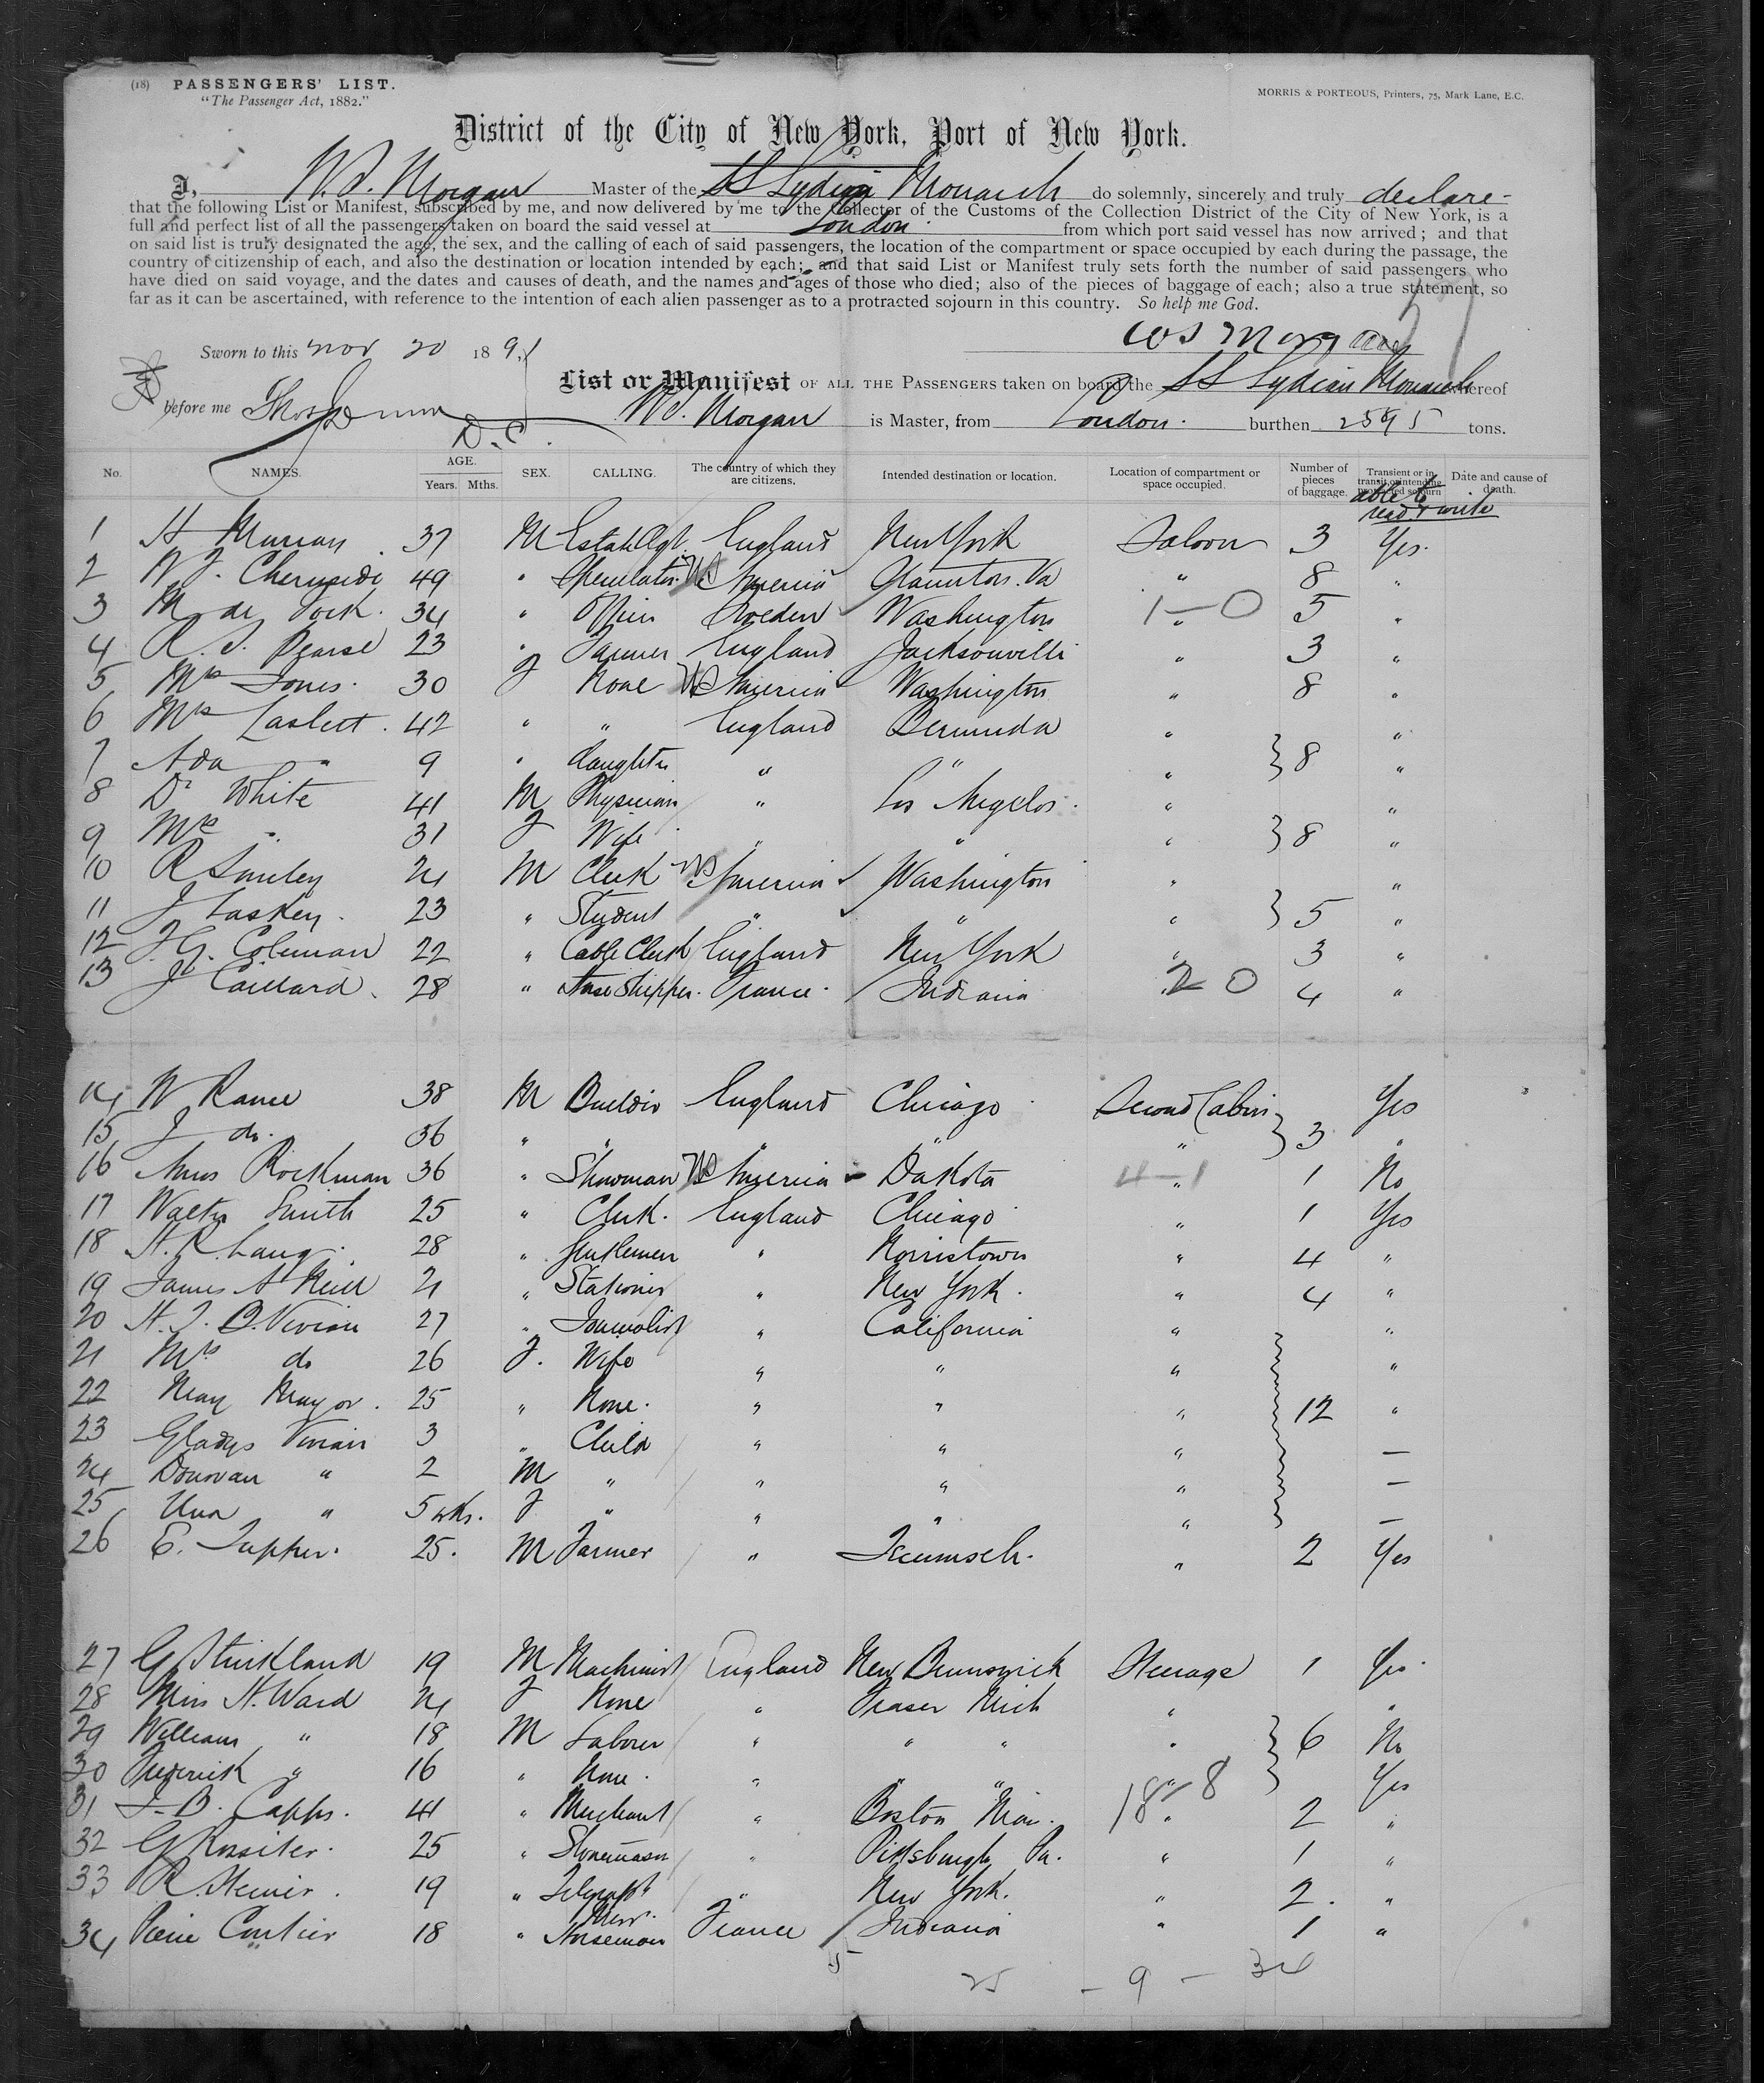 (18) PASSENGERS' LIST.
"The Passenger Act, 1882."
MORRIS & PORTEOUS, Printers, 75, Mark Lane, E.C.
District of the City of New York, Port of New York.
I, W. S. Morgan Master of the SS Lydian Monarch do solemnly, sincerely and truly declare
that the following List or Manifest, subscribed by me, and now delivered by me to the Collector of the Customs of the Collection District of the City of New York, is a
full and perfect list of all the passengers taken on board the said vessel at London from which port said vessel has now arrived; and that
on said list is truly designated the age, the sex, and the calling of each of said passengers, the location of the compartment or space occupied by each during the passage, the
country of citizenship of each, and also the destination or location intended by each; and that said List or Manifest truly sets forth the number of said passengers who
have died on said voyage, and the dates and causes of death, and the names and ages of those who died; also of the pieces of baggage of each; also a true statement, so
far as it can be ascertained, with reference to the intention of each alien passenger as to a protracted sojourn in this country. So help me God.
WS Morgan
Sworn to this Nov 20 1891
List or Manifest OF ALL THE PASSENGERS taken on board the SS Lydian Monarch whereof
before me Thos D.C.
W.S. Morgan is Master, from London. burthen 2595 tons.
No. NAMES. AGE. Years. Mths. SEX. CALLING. The country of which they are citizens. Intended destination or location. Location of compartment or space occupied. Number of pieces of baggage. Transient or in transit or intending protracted sojourn Date and cause of death.
able to read & write
1 H Murray 37 M Estate Agt. England New York Saloon 3 Yes.
2 W. J. Chernside 49 " Speculator US America Staunton. Va " 8 "
3 M. de 34 " Sweden Washington " 5 "
1 - 0
4 R. S. Pearse 23 " Farmer England Jacksonville " 3 "
5 Mrs Jones. 30 F None US America Washington " 8 "
6 Mrs Laslett. 42 " " England Bermuda " "
7 Ada " 9 " daughter " " " } 8 "
8 Dr White 41 M Physician " Los Angelos. " "
9 Mrs " 31 F Wife " " " } 8 "
10 R Smiley 24 M Clerk US America Washington " "
11 J Laskey. 23 " Student " " " } 5 "
12 J. G. Coleman 22 " Cable Clerk England New York " 3 "
13 J Caillard. 28 " Horse Shipper. France. Indiana 4 "
2 0
14 W Rance 38 M Builder England Chicago Second Cabin Yes
15 J do. 36 " " " " " } 3 "
16 Amos Rockman 36 " Showman US America Dakota " 1 No
4 - 1
17 Walter Smith 25 " Clerk. England Chicago " 1 Yes
18 H. R. Lang. 28 " Gentleman " Norristown " 4 "
19 James A Neill 21 " Stationer " New York. " 4 "
20 H. T. B. Vivian 27 " Journalist " California " "
21 Mrs do 26 F. Wife " " " "
22 May Mayor. 25 " None. " " " } 12 "
23 Gladys Vivian 3 " Child " " " —
24 Donovan " 2 M " " " " —
25 Una " 5 wks. F " " " " —
26 E. Tupper. 25. M Farmer " Tecumseh. " 2 Yes
27 G Strickland 19 M Machinist England New Brunswick Steerage 1 Yes.
28 Miss H. Ward 24 F None " Fraser Mich " "
29 William " 18 M Laborer " " " " } 6 No
30 Frederick " 16 " None. " " " " Yes
31 J. B. Capps. 41 " Merchant " Boston Mass. " 2 "
18 - 8
32 G Rossiter. 25 " Stonemason " Pittsburgh Pa. " 1 "
33 R Steiner. 19 " Telegraph Mess. " New York. " 2. "
34 Pierre Contier 18 " Horseman France Indiana " 1 "
5
25 - 9 - 34